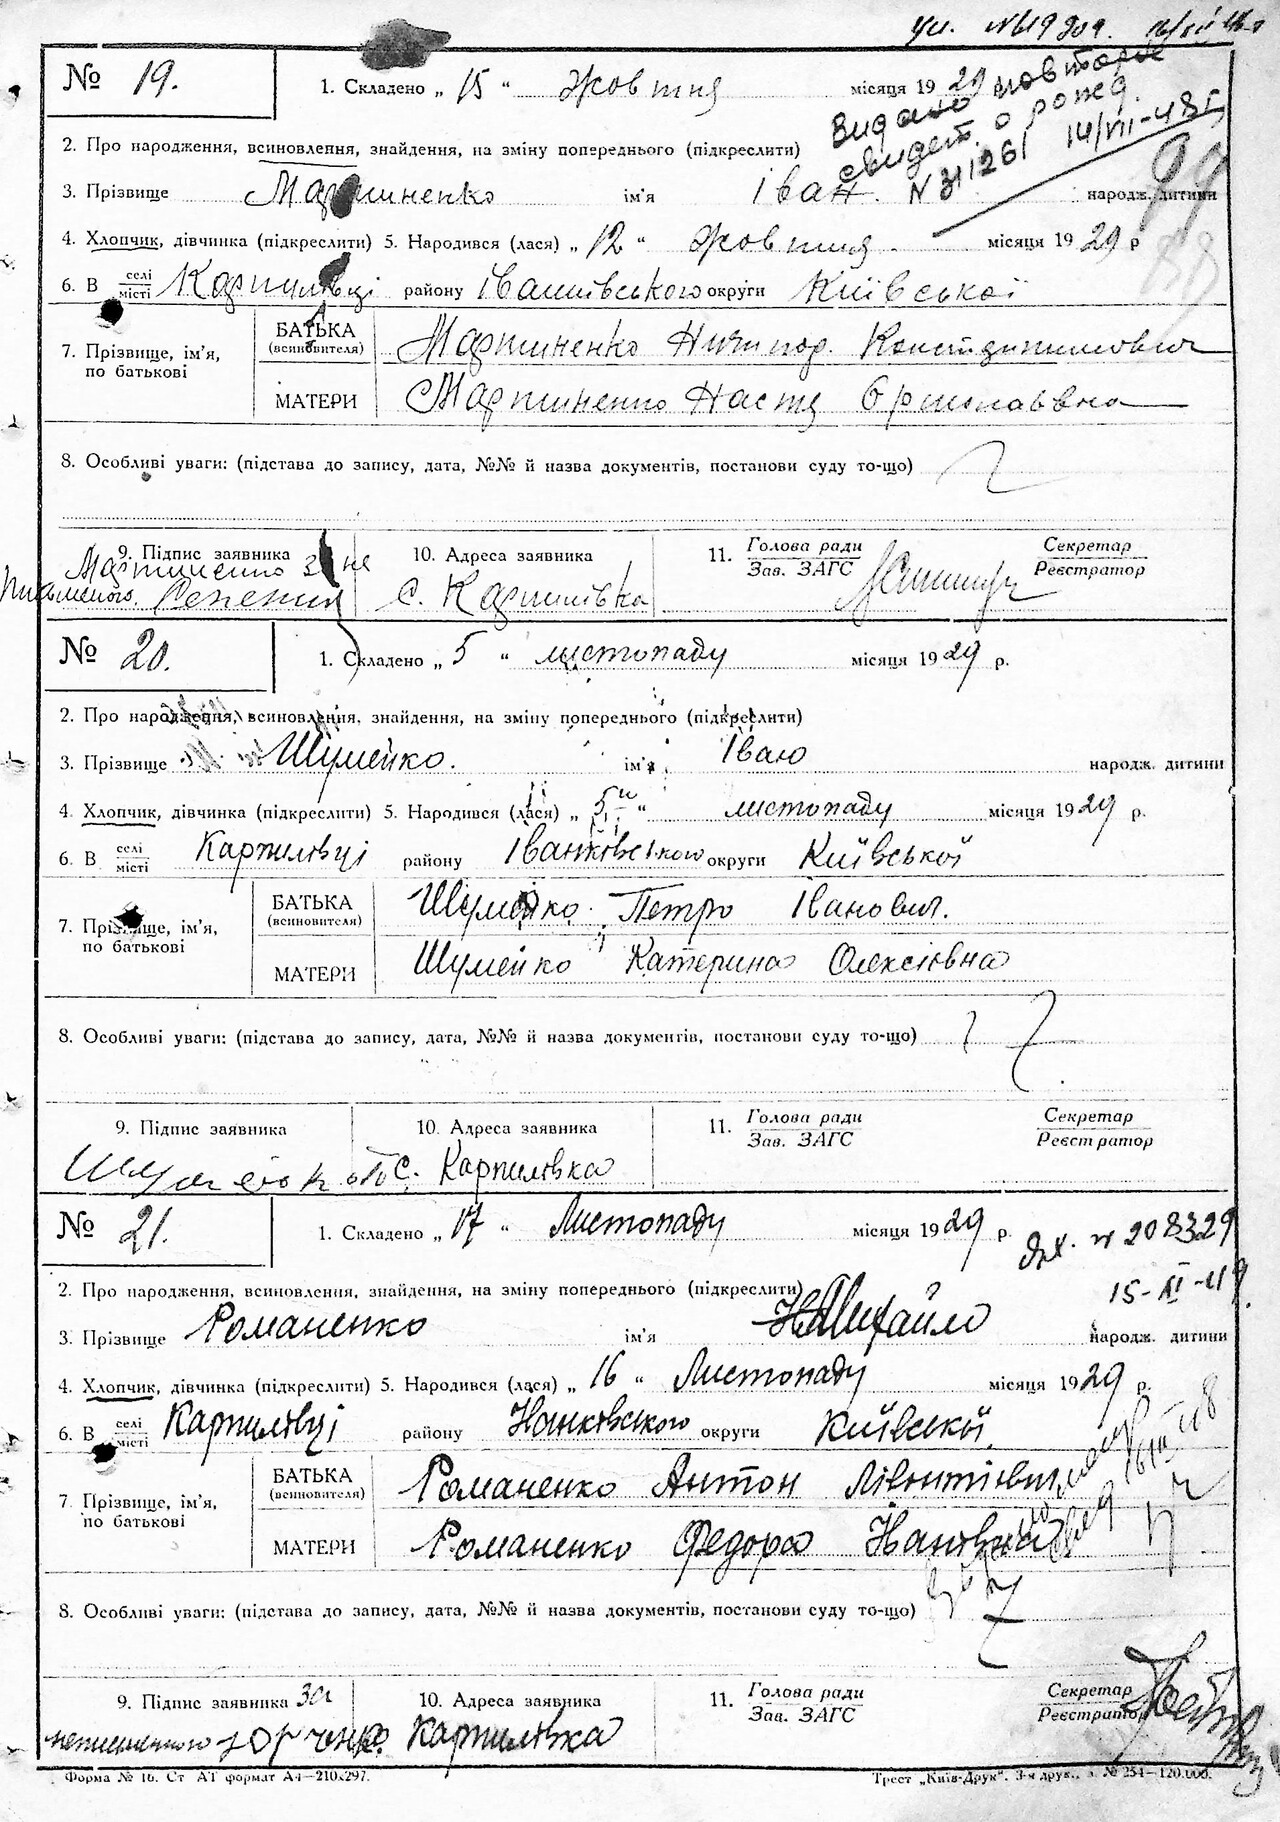 № 19. 1. Складено „ 15 “ Жовтня місяця 1929
Видано повторне
свидет. о рожд.
N 311261 14/VII-48г
2. Про народження, всиновлення, знайдення, на зміну попереднього (підкреслити)
3. Прізвище Мартиненко ім'я Іван. народж. дитини
4. Хлопчик, дівчинка (підкреслити) 5. Народився (лася) „ 12 “ Жовтня. місяця 1929 р
6. В селі місті Карпилівці району Іванківського округи Київської
7. Прізвище, ім'я, по батькові
БАТЬКА (всиновителя) Мартиненко Ничипор. Константинович
МАТЕРИ Мартиненко Настя Єрмолаївна
8. Особливі уваги: (підстава до запису, дата, №№ й назва документів, постанови суду то-що)
9. Підпис заявника 10. Адреса заявника 11. Голова ради Зав. ЗАГС Секретар Реєстратор
Мартиненко за не
письменого. с. Карпилівка
№ 20. 1. Складено „ 5 “ листопаду місяця 1929 р.
2. Про народження, всиновлення, знайдення, на зміну попереднього (підкреслити)
3. Прізвище Шумейко. ім'я Іван народж. дитини
4. Хлопчик, дівчинка (підкреслити) 5. Народився (лася) „ 5 “ листопаду місяця 1929 р.
6. В селі місті Карпилівці району Іванківського округи Київської
7. Прізвище, ім'я, по батькові
БАТЬКА (всиновителя) Шумейко Петро Іванович.
МАТЕРИ Шумейко Катерина Олексіївна
8. Особливі уваги: (підстава до запису, дата, №№ й назва документів, постанови суду то-що)
9. Підпис заявника 10. Адреса заявника 11. Голова ради Зав. ЗАГС Секретар Реєстратор
Шумейко с. Карпилівка
№ 21. 1. Складено „ 17 “ Листопаду місяця 1929 р.
N 208329
15-XI-49
2. Про народження, всиновлення, знайдення, на зміну попереднього (підкреслити)
3. Прізвище Романенко ім'я Михайло народж. дитини
4. Хлопчик, дівчинка (підкреслити) 5. Народився (лася) „ 16 “ Листопаду місяця 1929 р.
6. В селі місті Карпилівці району Іванківського округи Київській
7. Прізвище, ім'я, по батькові
БАТЬКА (всиновителя) Романенко Антон Лівонтієвич
МАТЕРИ Романенко Федора Іванівна
8. Особливі уваги: (підстава до запису, дата, №№ й назва документів, постанови суду то-що)
9. Підпис заявника за 10. Адреса заявника 11. Голова ради Зав. ЗАГС Секретар Реєстратор
неписьменого Карпилівка
Форма № 16. Ст АТ формат А4—210х297. Трест „Київ-Друк“. 3-я друк., з. № 254—120.000.